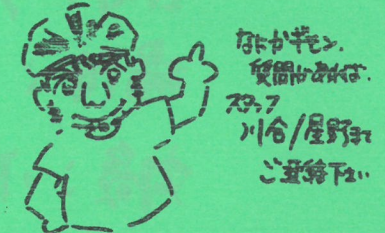 なにかギモン、
質問があれば、
スタッフ
川合/星野まで
ご連絡下さい